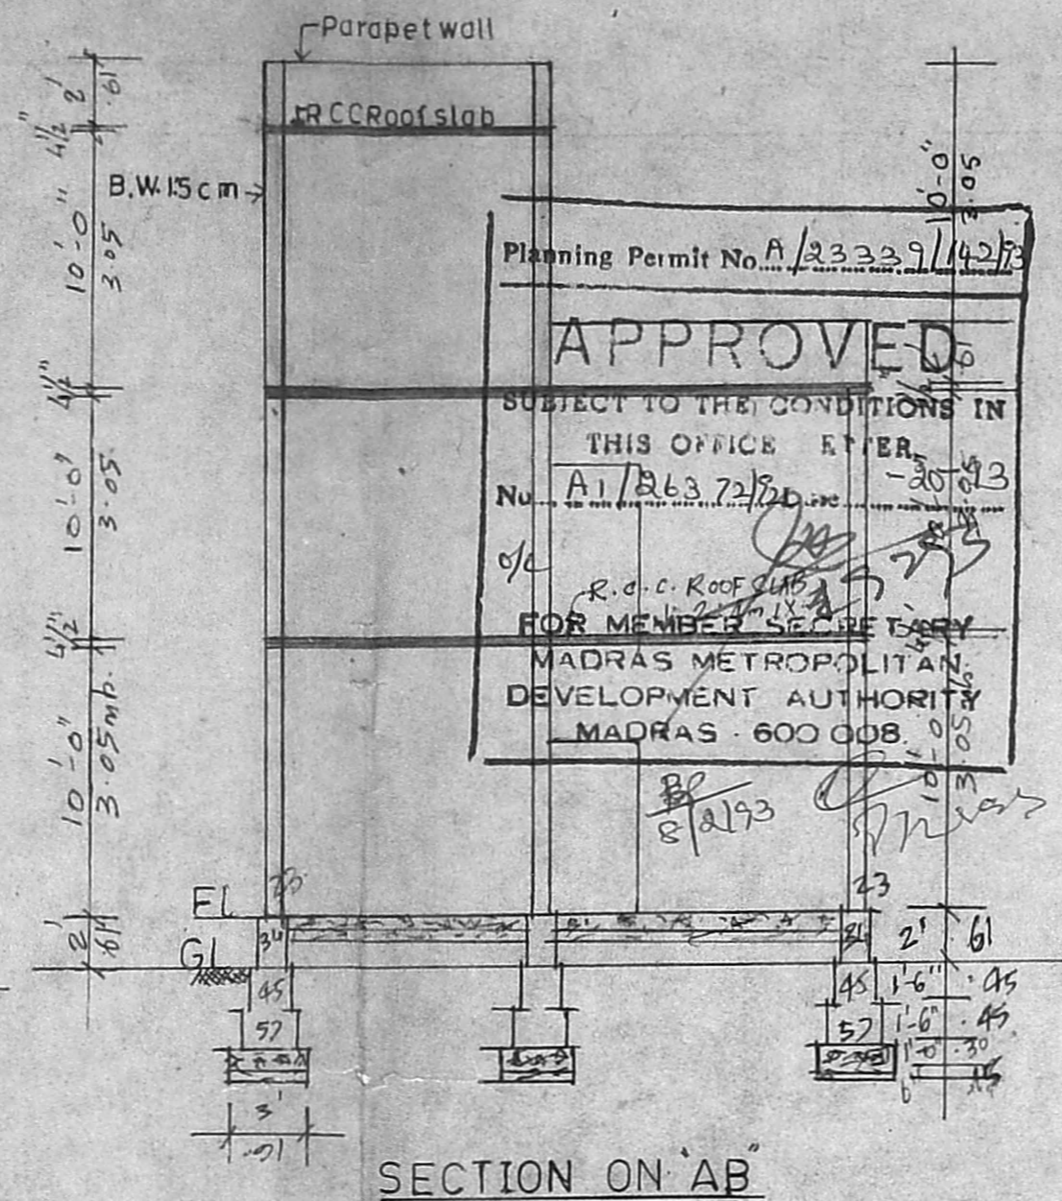 Parapet wall
R C C Roof slab
B.W. 15 cm
2'
.61
4½"
10'-0"
3.05
4½"
10'-0"
3.05
4½"
10'-0"
3.05
2'
.61
10'-0"
3.05
Planning Permit No. A/23339/142/93
APPROVED
SUBJECT TO THE CONDITIONS IN
THIS OFFICE
No. A1/26372/92
o/c
R.C.C. ROOF SLAB
FOR MEMBER SECRETARY
MADRAS METROPOLITAN
DEVELOPMENT AUTHORITY
MADRAS - 600 008.
10'-0
3.05
8/2/93
23
FL
GL
34
2'
61
45
45
1'-6"
.45
57
57
1'-6"
.45
1'-0"
.30
3'
.91
SECTION ON "AB"